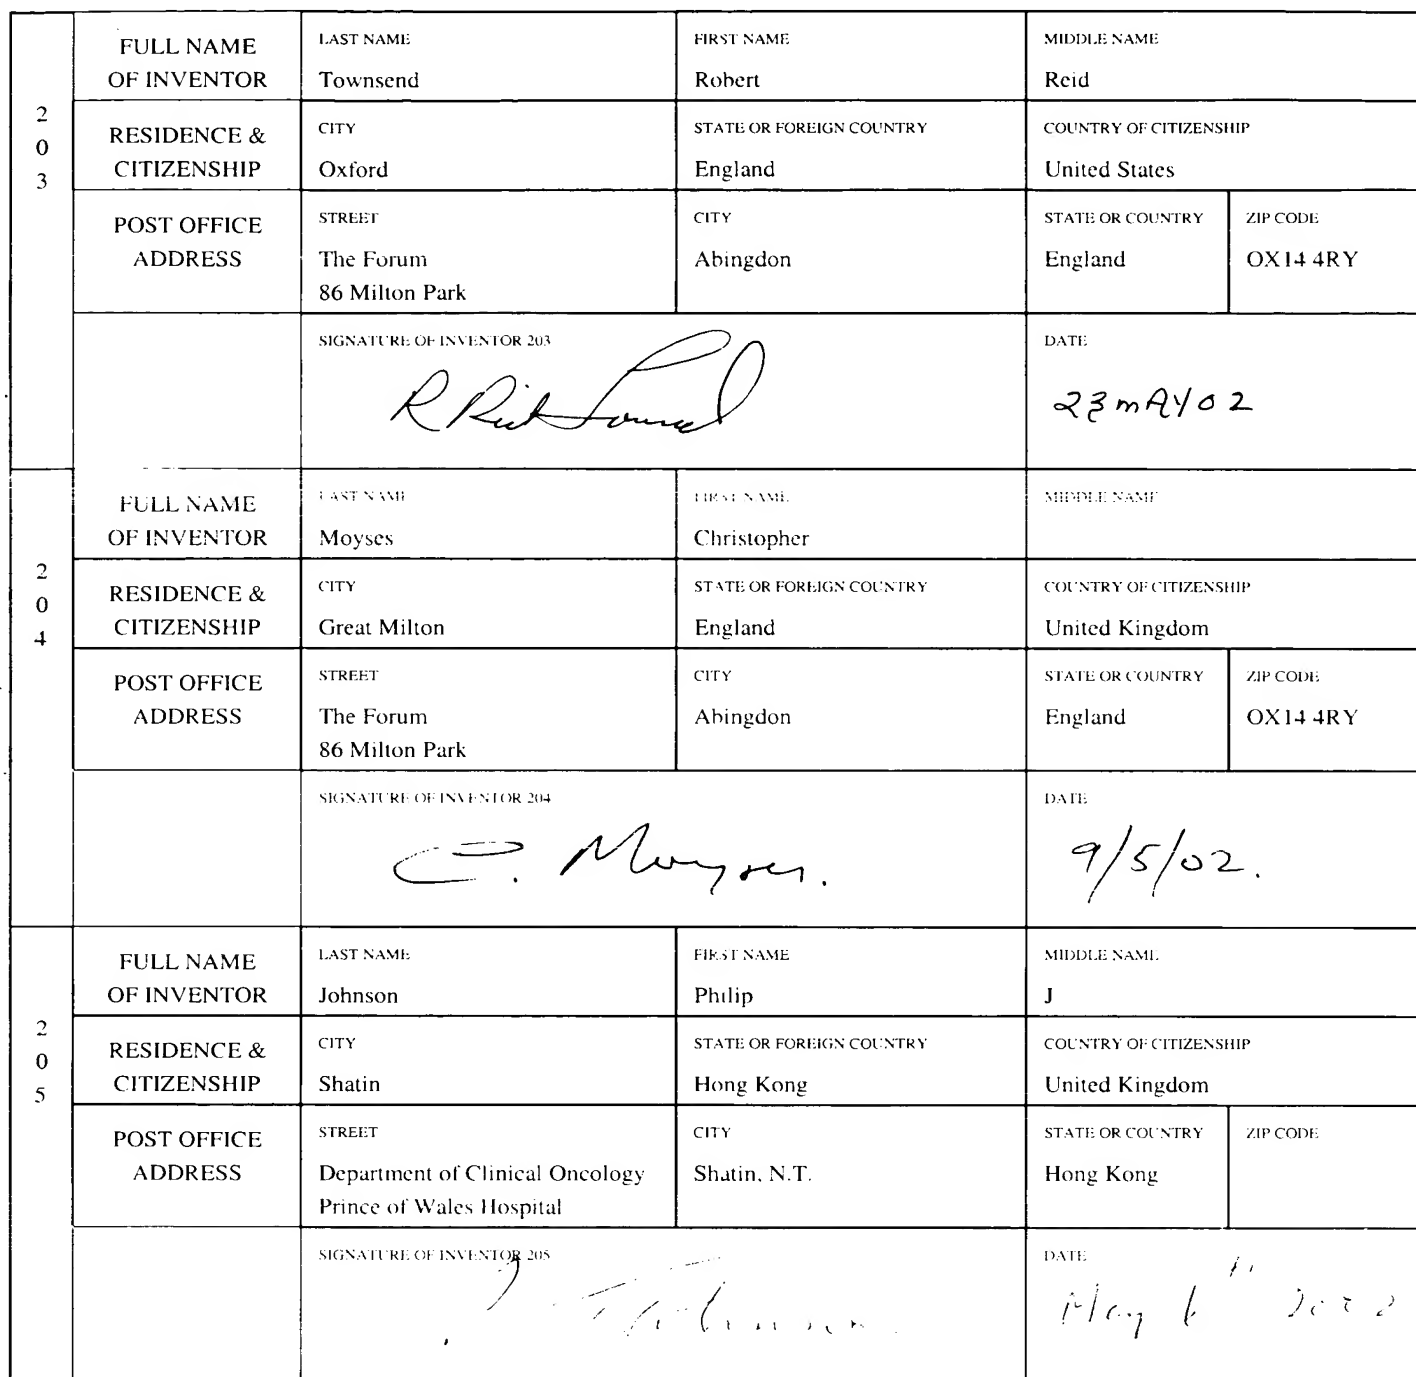 2
0
3
FULL NAME
OF INVENTOR
LAST NAME
Townsend
FIRST NAME
Robert
MIDDLE NAME
Reid
RESIDENCE &
CITIZENSHIP
CITY
Oxford
STATE OR FOREIGN COUNTRY
England
COUNTRY OF CITIZENSHIP
United States
POST OFFICE
ADDRESS
STREET
The Forum
86 Milton Park
CITY
Abingdon
STATE OR COUNTRY
England
ZIP CODE
OX14 4RY
SIGNATURE OF INVENTOR 203
DATE
23 MAY 02
2
0
4
FULL NAME
OF INVENTOR
LAST NAME
Moyses
FIRST NAME
Christopher
MIDDLE NAME
RESIDENCE &
CITIZENSHIP
CITY
Great Milton
STATE OR FOREIGN COUNTRY
England
COUNTRY OF CITIZENSHIP
United Kingdom
POST OFFICE
ADDRESS
STREET
The Forum
86 Milton Park
CITY
Abingdon
STATE OR COUNTRY
England
ZIP CODE
OX14 4RY
SIGNATURE OF INVENTOR 204
C. Moyses.
DATE
9/5/02.
2
0
5
FULL NAME
OF INVENTOR
LAST NAME
Johnson
FIRST NAME
Philip
MIDDLE NAME
J
RESIDENCE &
CITIZENSHIP
CITY
Shatin
STATE OR FOREIGN COUNTRY
Hong Kong
COUNTRY OF CITIZENSHIP
United Kingdom
POST OFFICE
ADDRESS
STREET
Department of Clinical Oncology
Prince of Wales Hospital
CITY
Shatin, N.T.
STATE OR COUNTRY
Hong Kong
ZIP CODE
SIGNATURE OF INVENTOR 205
DATE
May 6th 2002